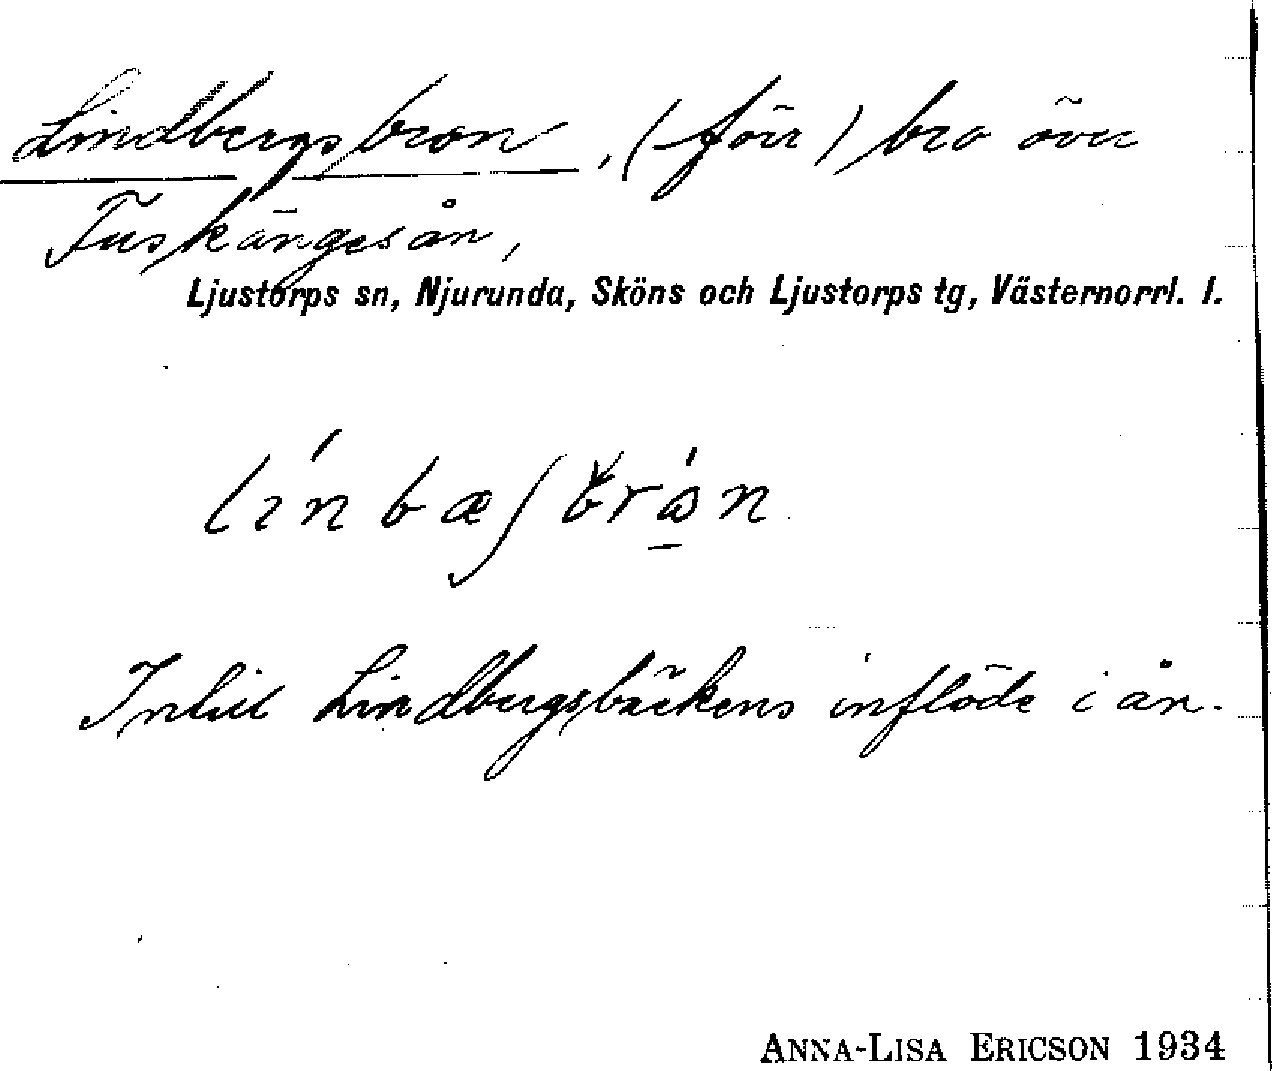 Lindbergsbron, (förr) bro över
Fuskängesån,
Ljustorps sn, Njurunda, Sköns och Ljustorps tg, Västernorrl. l.
Intill Lindbergsbäckens inflöde i ån.
ANNA-LISA ERICSON 1934